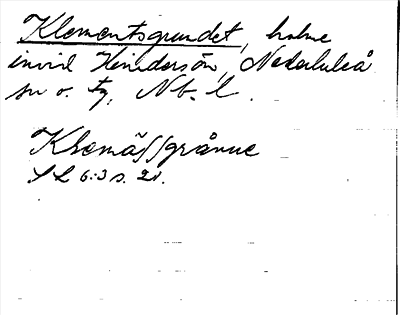 Klementsgrundet, holme
invid Hindersön, Nederluleå
sn o. tg, Nb. l.
Klemäſſgrånne
SL 6:3 s. 21.